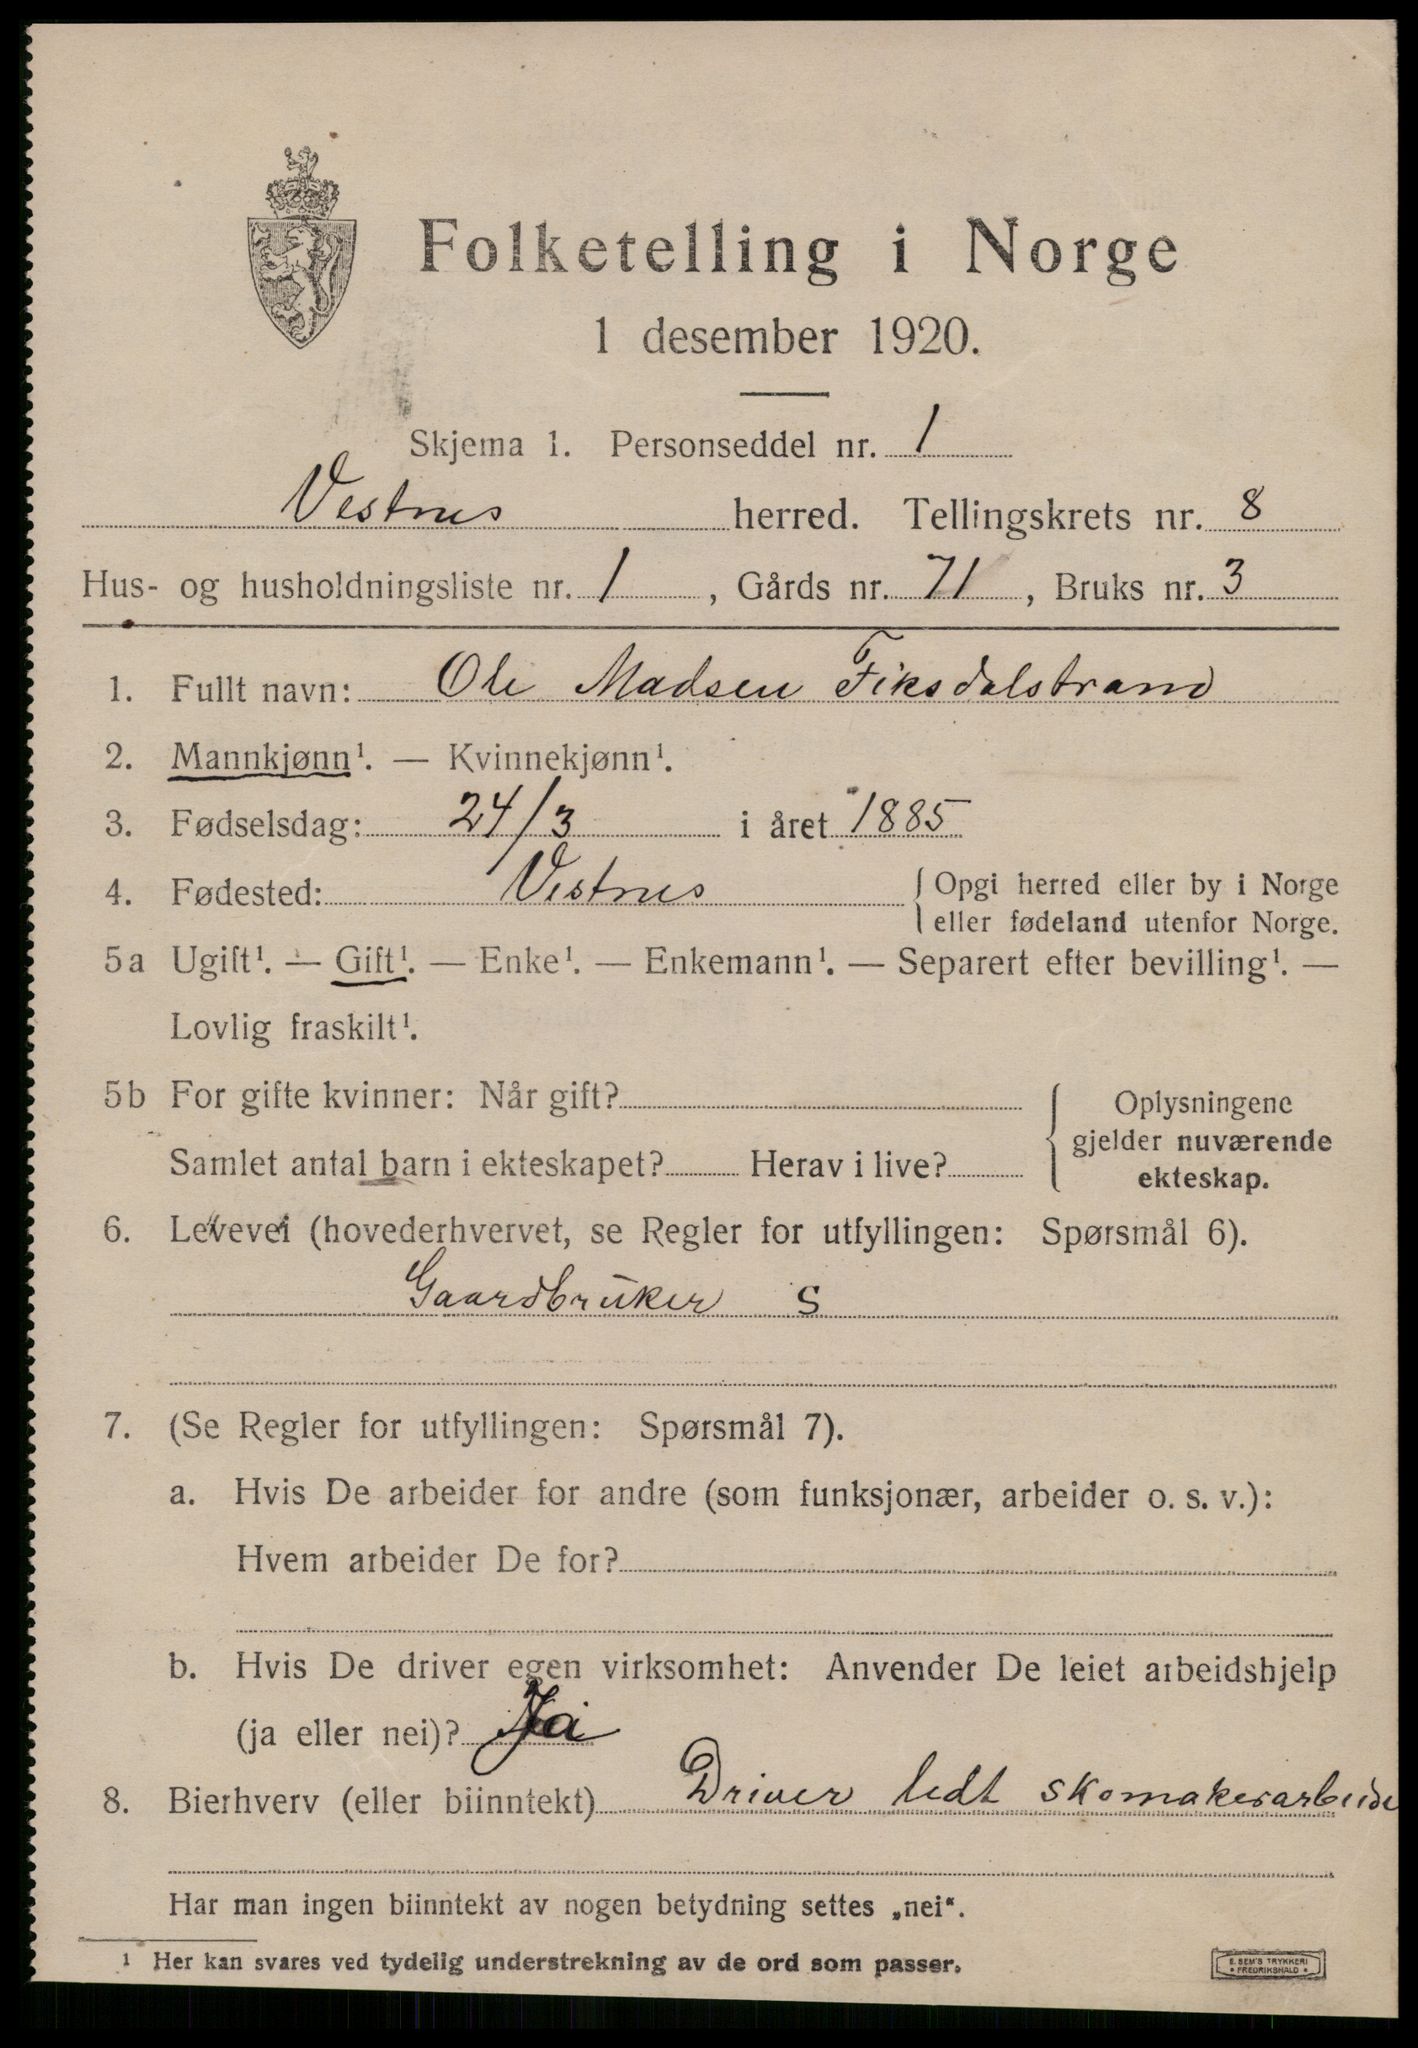 Folketelling i Norge
1 desember 1920.
Skjema 1. Personseddel nr. 1
Vestnes herred. Tellingskrets nr. 8
Hus- og husholdningsliste nr. 1, Gårds nr. 71, Bruks nr. 3
1. Fullt navn: Ole Madsen Fiksdalstrand
2. Mannkjønn¹. — Kvinnekjønn¹.
3. Fødselsdag: 24/3 i året 1885
4. Fødested: Vestnes { Opgi herred eller by i Norge
eller fødeland utenfor Norge.
5a Ugift¹. — Gift¹. — Enke¹. — Enkemann¹. — Separert efter bevilling¹. —
Lovlig fraskilt¹.
5b For gifte kvinner: Når gift?
Samlet antal barn i ekteskapet? Herav i live?
Oplysningene
gjelder nuværende
ekteskap.
6. Levevei (hovederhvervet, se Regler for utfyllingen: Spørsmål 6).
Gaardbruker S
7. (Se Regler for utfyllingen: Spørsmål 7).
a. Hvis De arbeider for andre (som funksjonær, arbeider o. s. v.):
Hvem arbeider De for?
b. Hvis De driver egen virksomhet: Anvender De leiet arbeidshjelp
(ja eller nei)? Ja
8. Bierhverv (eller biinntekt) Driver lidt skomakerarbeide
Har man ingen biinntekt av nogen betydning settes „nei“.
¹ Her kan svares ved tydelig understrekning av de ord som passer.
E. SEM'S TRYKKERI
• FREDRIKSHALD •